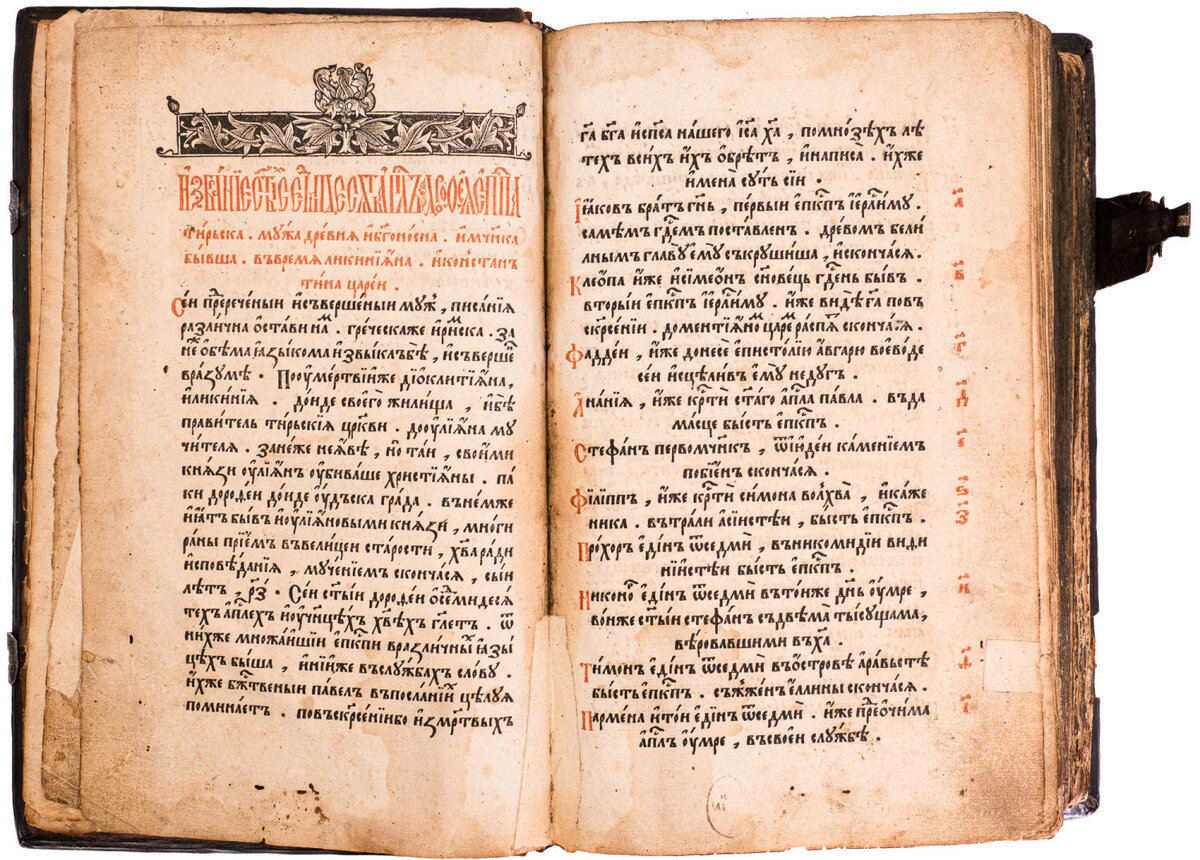 тирьска . мѹжа древнѧ и҆бг҃оносна . и҆мч҃нка
бывша . въвремѧ ликинїѧ́на . и҆констѧн
тина царен .
Сен пр҃ереченыи и҆съвершеныи мѹж , писанїѧ
различна ѡ҆стави на̑ . греческаже и҆ри́мска . за
не ѻ҆бѣма ꙗ҆зыкома и҆звыклъбѣ , и҆съверше
вразѹмѣ . Поѹ҆мертвїиже дїѻклитїѧ́на ,
и҆ликинїѧ . донде своегѡ жилища , и҆бѣ
правитель тирьскїѧ цр҃кви . доѹ҆лїѧ́на мѹ
чителѧ . занеже неꙗ҆́вѣ , но таи , своими
кнѧзи ѹ҆лїѧ́нъ ѹ҆биваше христїѧ́ны . па
ки дороѳен донде ѻ҆ѹ҆дъска града . вънемже
ꙗ҆́тъ бывъ и҆ѹ҆лїѧ́новыми кнѧзи , многи
раны прїе́мъ въвелицеи старости , хв҃а ради
и҆сповѣданїѧ , мѹченїемъ скончасѧ , сыи
лѣтъ , р҃з . Сеи ст҃ыи дороѳеи ѻ҆сема десѧ
техъ ап҃лехъ и҆ѹ҆чн҃цѣхъ хв҃ѣхъ гл҃етъ . ѿ
нихже множаи҆шїи еп҃кпи вразличны ꙗ҆зы
цѣхъ быша , и҆нїи҆же въслѹжбахъ словѹ .
и҆хже бж҃твеныи павелъ въпосланїи цѣлѹѧ
поминаетъ . повъскр҃сенїибо и҆змр҃твыхъ
га҃ бг҃а и҆сп҃са нашего і҆с҃а х҃а , помнозѣхъ лѣ
техъ всихъ и҆хъ ѻ҆брѣтъ , и҆написа . и҆хже
имена̀ сѹть сїи .
І҆ꙗ́ковъ братъ гн҃ь , первыи еп҃кпъ і҆ер҃лимѹ . а҃
самѣмъ гд҃емъ поставленъ . древомъ бели
лнымъ главѹ е҆мѹ съкрѹшиша , и҆скончасѧ .
Клеѡпа и҆же и҆симеонъ сн҃овець гд҃ень бывъ . в҃
вторыи еп҃кпъ і҆ер҃лимѹ . и҆же видѣ га҃ повъ
скр҃сенїи . доментїѧ́но царе распѧ скончасѧ .
Фаддеи , и҆же донесе е҆пистолїю а҆вгарю воеводе г҃
сеи и҆сцѣливъ е҆мѹ недѹгъ .
А҆нанїѧ , и҆же кр҃ти ст҃аго а҆п҃ла павла . въда д҃
масце бысть еп҃кпъ .
Стефанъ первомч҃нкъ , ѿи҆ѹ҆деи каменїемъ е҃
побїенъ скончасѧ .
Филиппъ , и҆же кр҃ти симона волхва , и҆каже ѕ҃
ника . вътрали а҆сїистѣи , бысть еп҃кпъ . з҃
Прохоръ е҆динъ ѿседми , въникомидїи види
нїистѣи бысть еп҃кпъ .
Никоно е҆динъ ѿседми вътонже дн҃ь ѹ҆мре , и҃
вонже ст҃ыи стефанъ съдвѣма тысѹщама ,
вѣровавшими въх҃а .
Тимонъ е҆динъ ѿседми въѻ҆стровѣ а҆равьстѣ ѳ҃
бысть еп҃кпъ . съжженъ е҆ллины скончасѧ .
Пармена и҆тои е҆динъ ѿседми . и҆же пр҃еѻ҆чима і҃
а҆п҃лъ ѹ҆мре , въсвоеи слѹжбѣ .